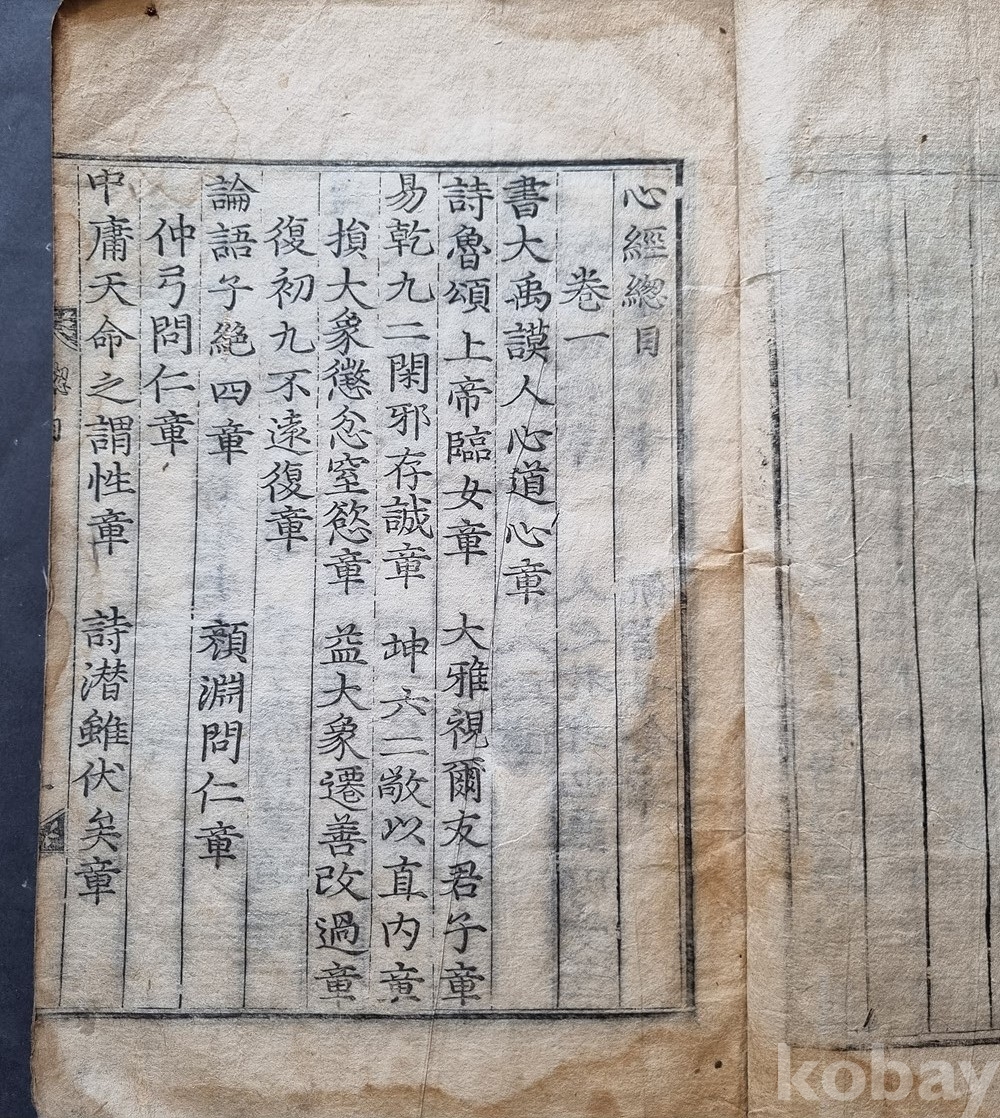 心經緫目
卷一
書大禹謨人心道心章
詩魯頌上帝臨女章 大雅視爾友君子章
易乾九二閑邪存誠章 坤六二敬以直内章
損大象懲忿窒慾章 益大象遷善改過章
復初九不遠復章
論語子絶四章 顔淵問仁章
仲弓問仁章
中庸天命之謂性章 詩潜雖伏矣章
kobay